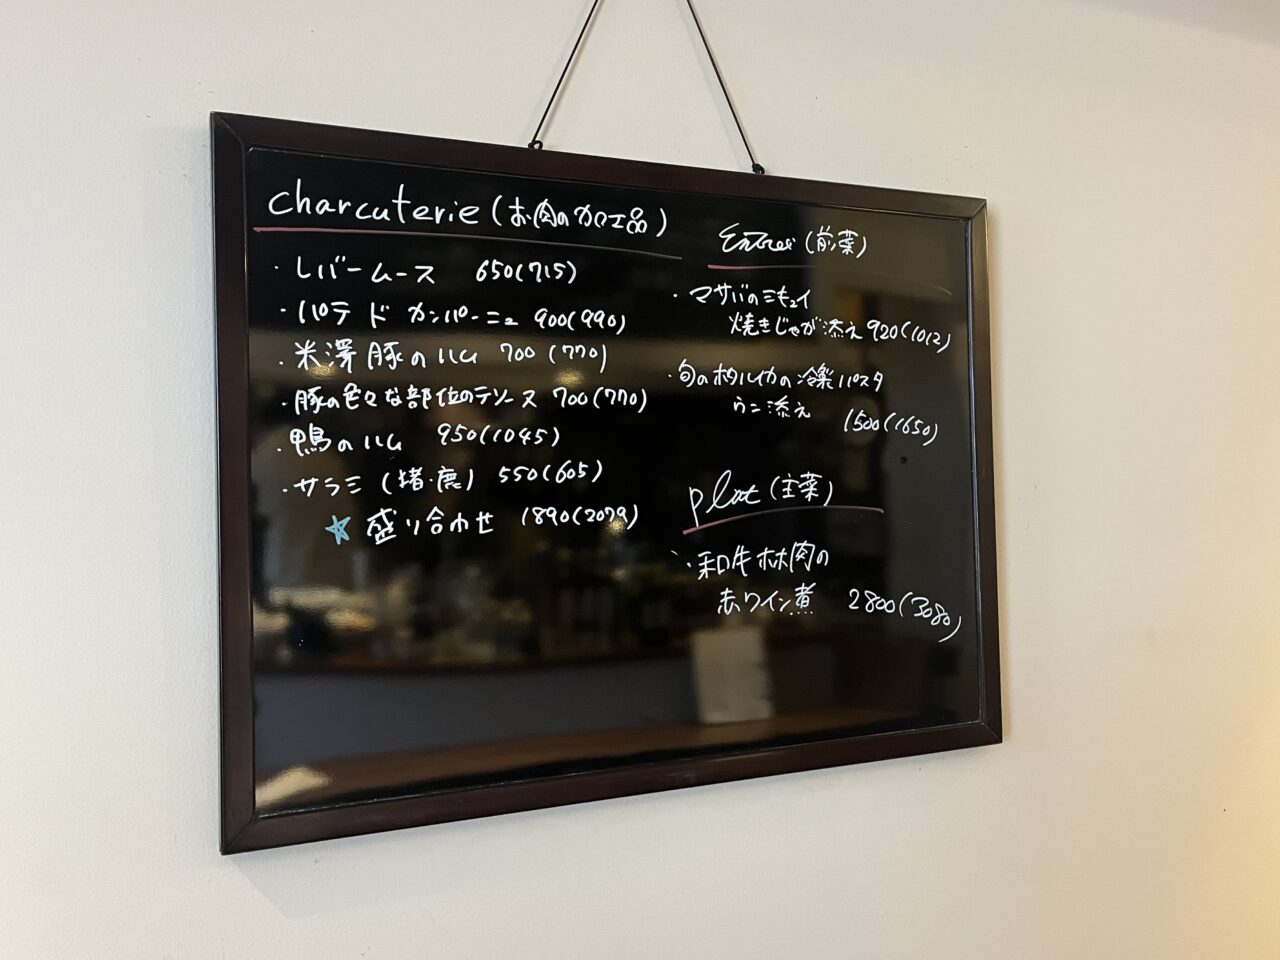 charcuterie (お肉の加工品)
・レバームース 650(715)
・パテ ド カンパーニュ 900(990)
・米澤豚のハム 700(770)
・豚の色々な部位のテリーヌ 700(770)
・鴨のハム 950(1045)
・サラミ (猪・鹿) 550(605)
☆ 盛り合わせ 1890(2079)
(前菜)
・マサバのミキュイ
焼きじゃが添え 920(1012)
・旬のホタルイカの冷製パスタ
ウニ添え 1500(1650)
plat (主菜)
・和牛ホホ肉の
赤ワイン煮 2800(3080)